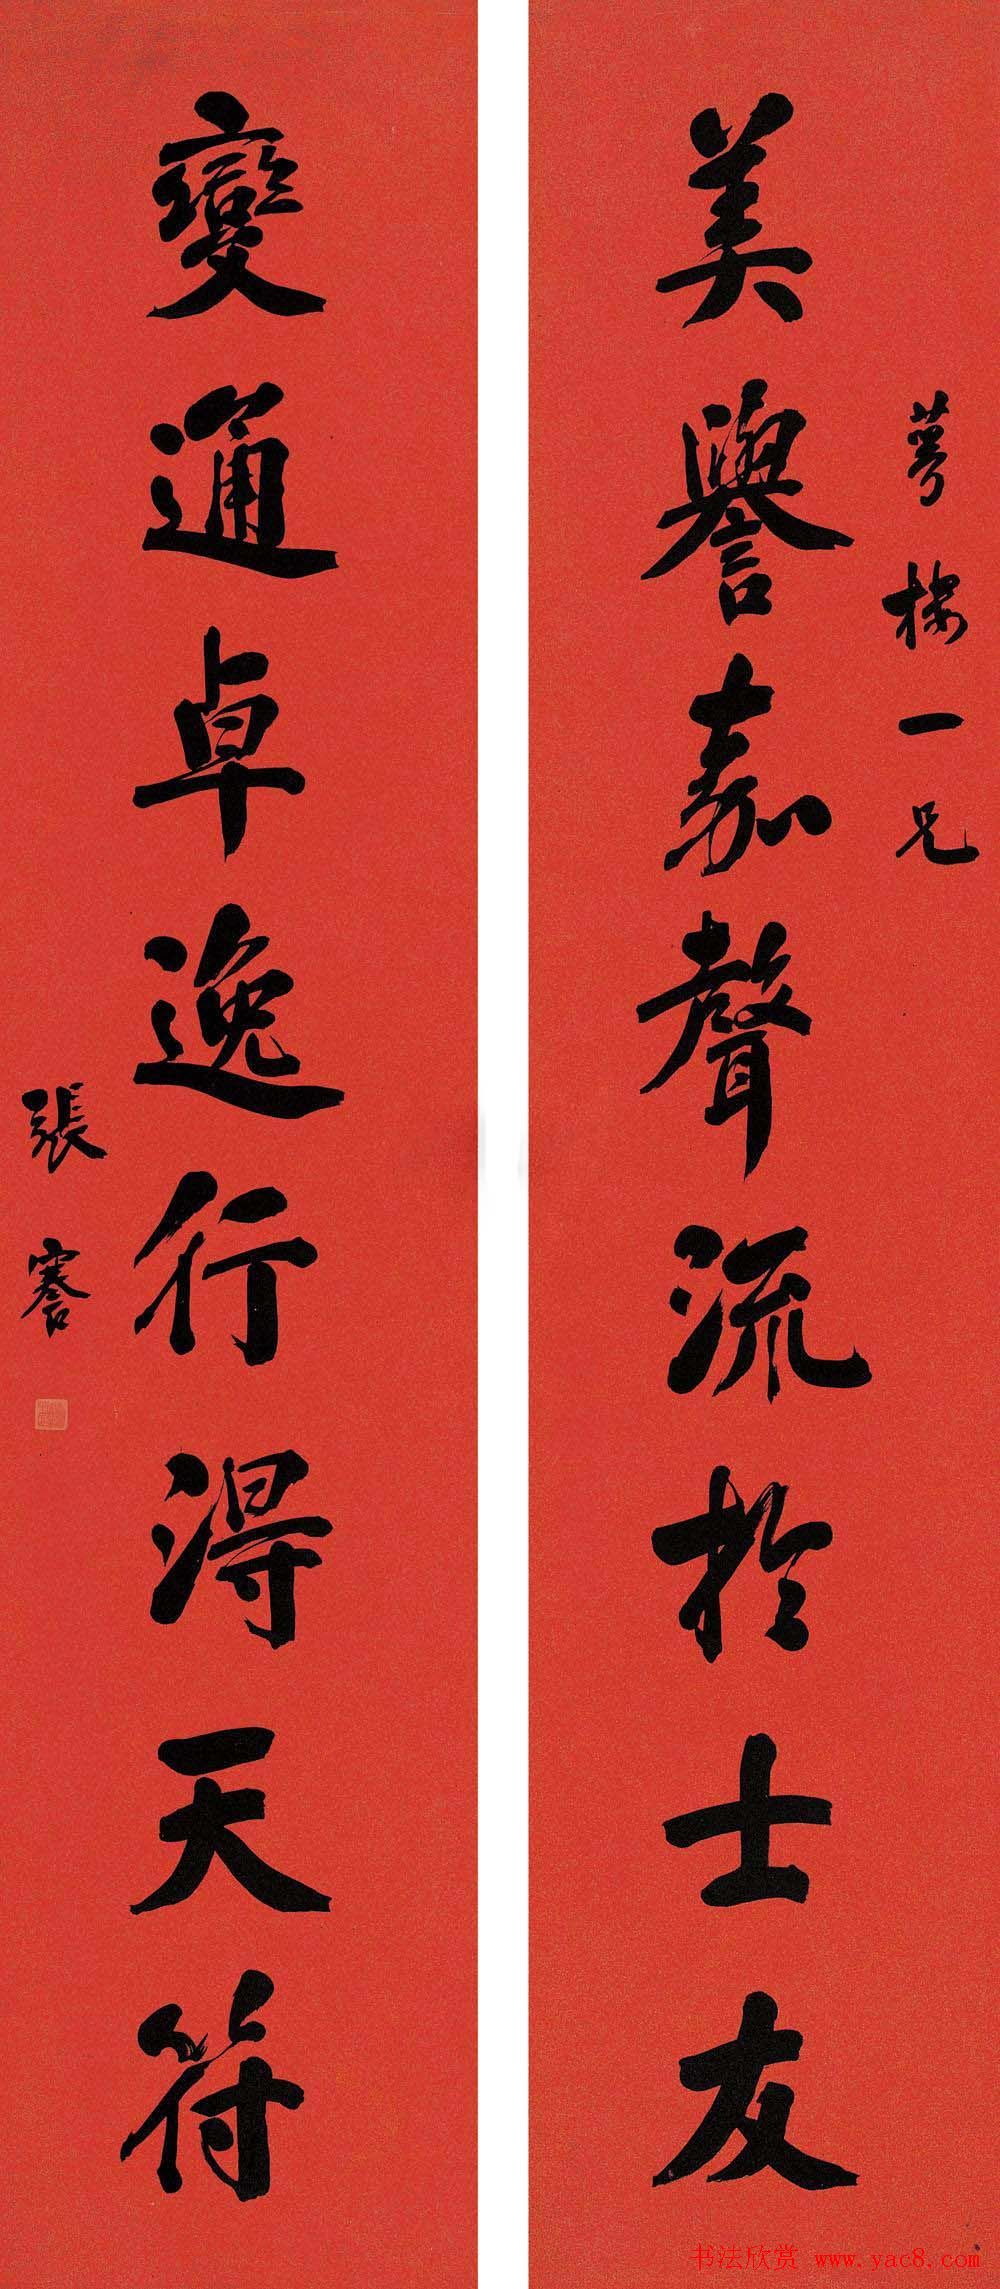 萼樓一兄
美譽嘉聲流於士友
變通卓逸行得天符
張謇
书法欣赏 www.yac8.com